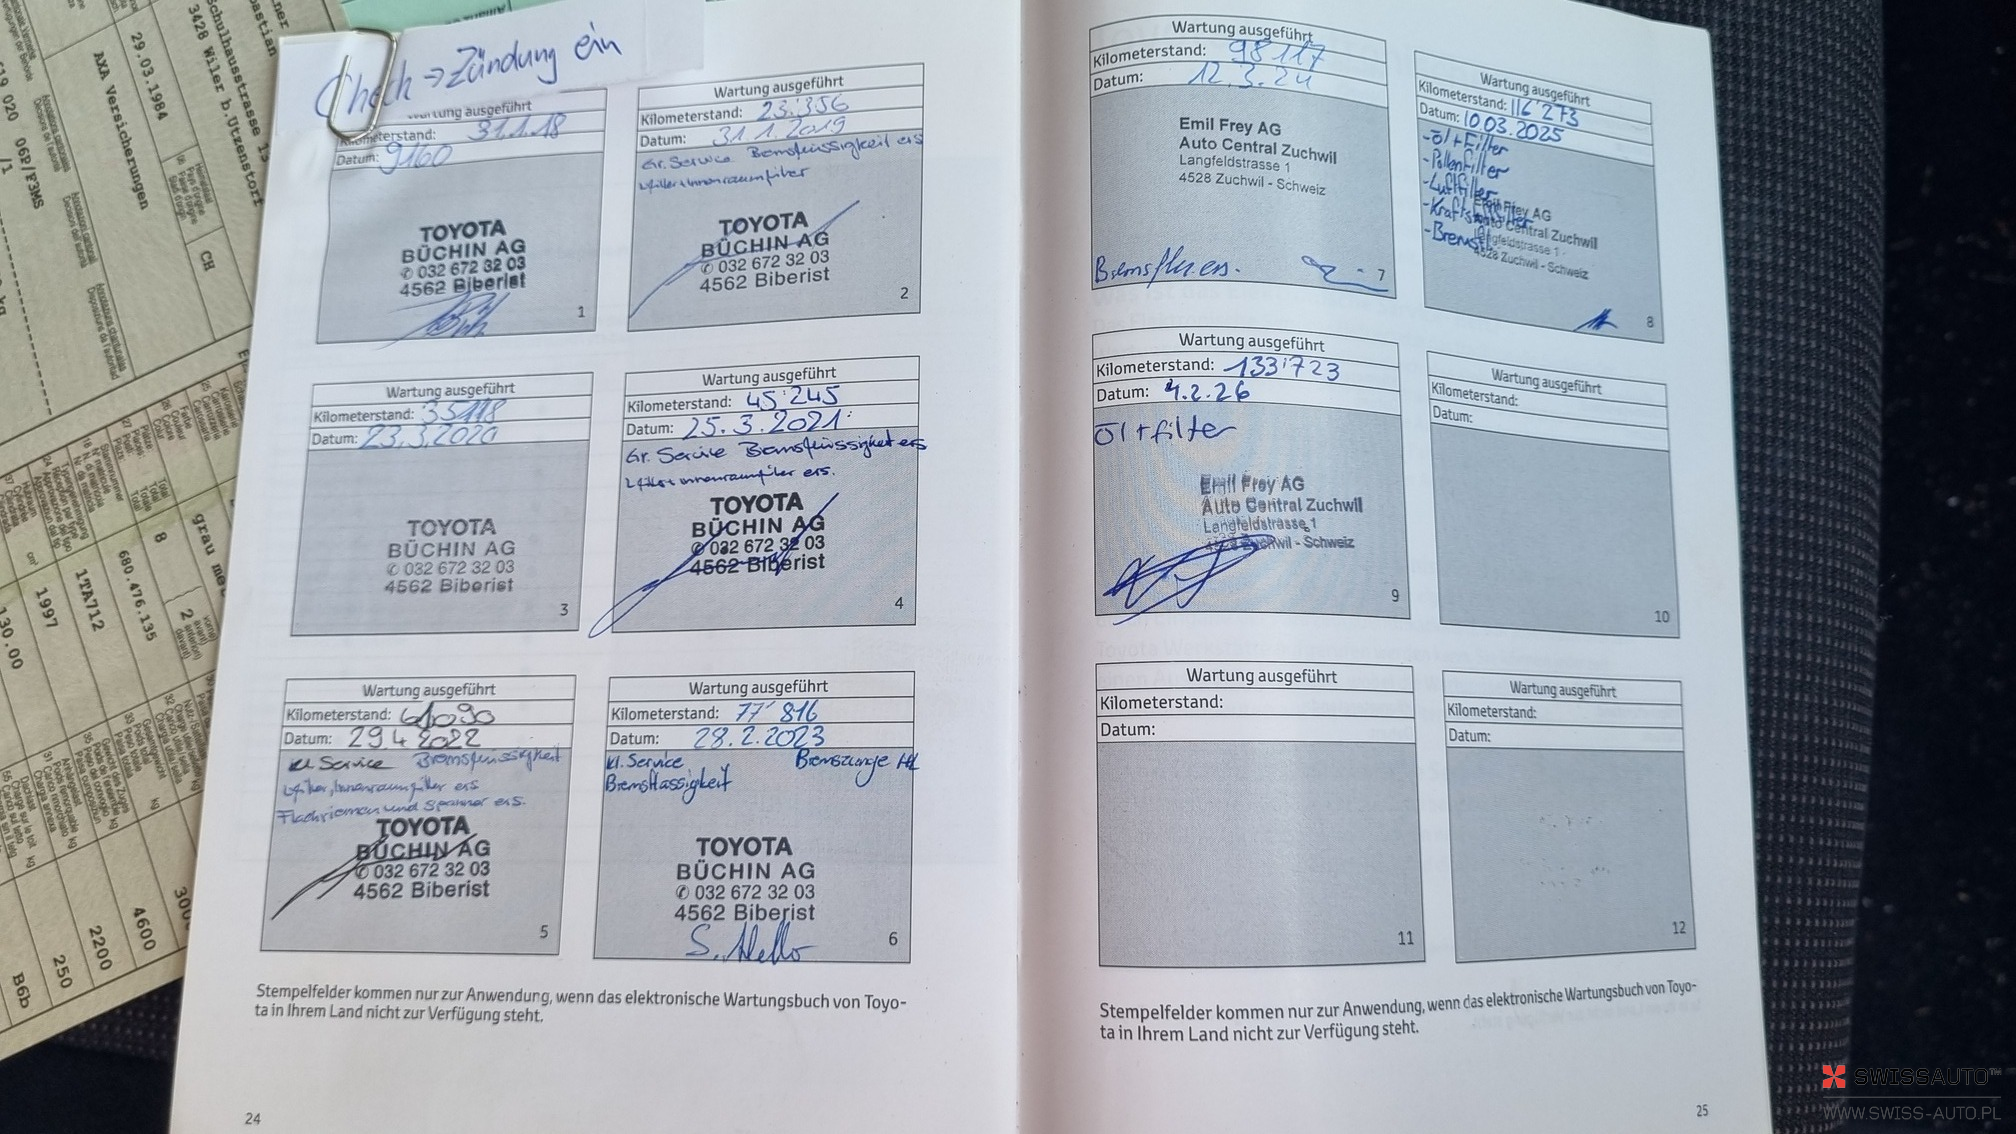 Check → Zündung ein
Wartung ausgeführt
Kilometerstand: 31.1.18
Datum: 9160
TOYOTA
BÜCHIN AG
✆ 032 672 32 03
4562 Biberist
1
Wartung ausgeführt
Kilometerstand: 23.356
Datum: 31.1.2019
Gr. Service Bremsflüssigkeit ers
TOYOTA
BÜCHIN AG
✆ 032 672 32 03
4562 Biberist
2
Wartung ausgeführt
Kilometerstand: 35118
Datum: 23.3.2020
TOYOTA
BÜCHIN AG
✆ 032 672 32 03
4562 Biberist
3
Wartung ausgeführt
Kilometerstand: 45'245
Datum: 25.3.2021
Gr. Service Bremsflüssigkeit ers
TOYOTA
BÜCHIN AG
✆ 032 672 32 03
4562 Biberist
4
Wartung ausgeführt
Kilometerstand: 61090
Datum: 29.4.2022
kl. Service Bremsflüssigkeit
Flachriemen und Spanner ers.
TOYOTA
BÜCHIN AG
✆ 032 672 32 03
4562 Biberist
5
Wartung ausgeführt
Kilometerstand: 77'816
Datum: 28.2.2023
kl. Service Bremszange
Bremsflüssigkeit
TOYOTA
BÜCHIN AG
✆ 032 672 32 03
4562 Biberist
6
Stempelfelder kommen nur zur Anwendung, wenn das elektronische Wartungsbuch von Toyo-
ta in Ihrem Land nicht zur Verfügung steht.
24
Wartung ausgeführt
Kilometerstand: 98117
Datum: 12.3.24
Emil Frey AG
Auto Central Zuchwil
Langfeldstrasse 1
4528 Zuchwil - Schweiz
Bremsflü. ers.
7
Wartung ausgeführt
Kilometerstand: 116'273
Datum: 10.03.2025
-Öl+Filter
-Pollenfilter
-Luftfilter
-Kraftstofffilter
-Bremsfl.
Emil Frey AG
Auto Central Zuchwil
Langfeldstrasse 1
4528 Zuchwil - Schweiz
8
Wartung ausgeführt
Kilometerstand: 133'723
Datum: 4.2.26
Öl+filter
Emil Frey AG
Auto Central Zuchwil
Langfeldstrasse 1
4528 Zuchwil - Schweiz
9
Wartung ausgeführt
Kilometerstand:
Datum:
10
Wartung ausgeführt
Kilometerstand:
Datum:
11
Wartung ausgeführt
Kilometerstand:
Datum:
12
Stempelfelder kommen nur zur Anwendung, wenn das elektronische Wartungsbuch von Toyo-
ta in Ihrem Land nicht zur Verfügung steht.
25
Schulhausstrasse 13
3428 Wiler b.Utzenstorf
29.03.1984
AXA Versicherungen
CH
grau
8
2
680.476.135
1TA712
1997
130.00
4600
2200
250
B6b
SWISSAUTO™
WWW.SWISS-AUTO.PL